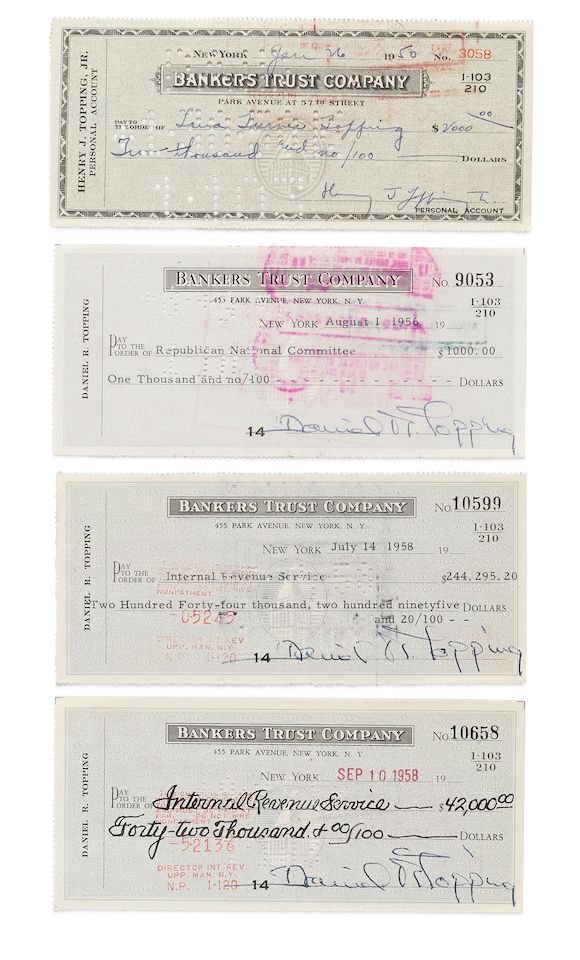 HENRY J. TOPPING, JR.
PERSONAL ACCOUNT
NEW YORK Jan 26 1950 No. 3058
BANKERS TRUST COMPANY
1-103
210
PARK AVENUE AT 57TH STREET
PAY TO THE ORDER OF Lana Turner Topping $2000 00
Two thousand and no/100 DOLLARS
Henry J Topping Jr.
PERSONAL ACCOUNT
DANIEL R. TOPPING
BANKERS TRUST COMPANY No. 9053
455 PARK AVENUE, NEW YORK, N. Y.
1-103
210
NEW YORK August 1, 1956 19
PAY TO THE ORDER OF Republican National Committee $1000.00
One Thousand and no/100 - - - - - - - - - - DOLLARS
14 Daniel R Topping
DANIEL R. TOPPING
BANKERS TRUST COMPANY No. 10599
455 PARK AVENUE, NEW YORK, N. Y.
1-103
210
NEW YORK July 14 1958 19
PAY TO THE ORDER OF Internal Revenue Service $244,295.20
NONPAYMENT
Two Hundred Forty-four thousand, two hundred ninetyfive DOLLARS
and 20/100 - -
-05245
DIRECTOR INT. REV
UPP. MAN. N.Y.
N.P. 1-120
14 Daniel R Topping
DANIEL R. TOPPING
BANKERS TRUST COMPANY No. 10658
455 PARK AVENUE, NEW YORK, N. Y.
1-103
210
NEW YORK SEP 10 1958 19
PAY TO THE ORDER OF Internal Revenue Service $42,000 00
DO NOT WIRE
NONPAYMENT
Forty-two Thousand & 00/100 DOLLARS
-52136
DIRECTOR INT. REV
UPP. MAN. N.Y.
N.P. 1-120
14 Daniel R Topping